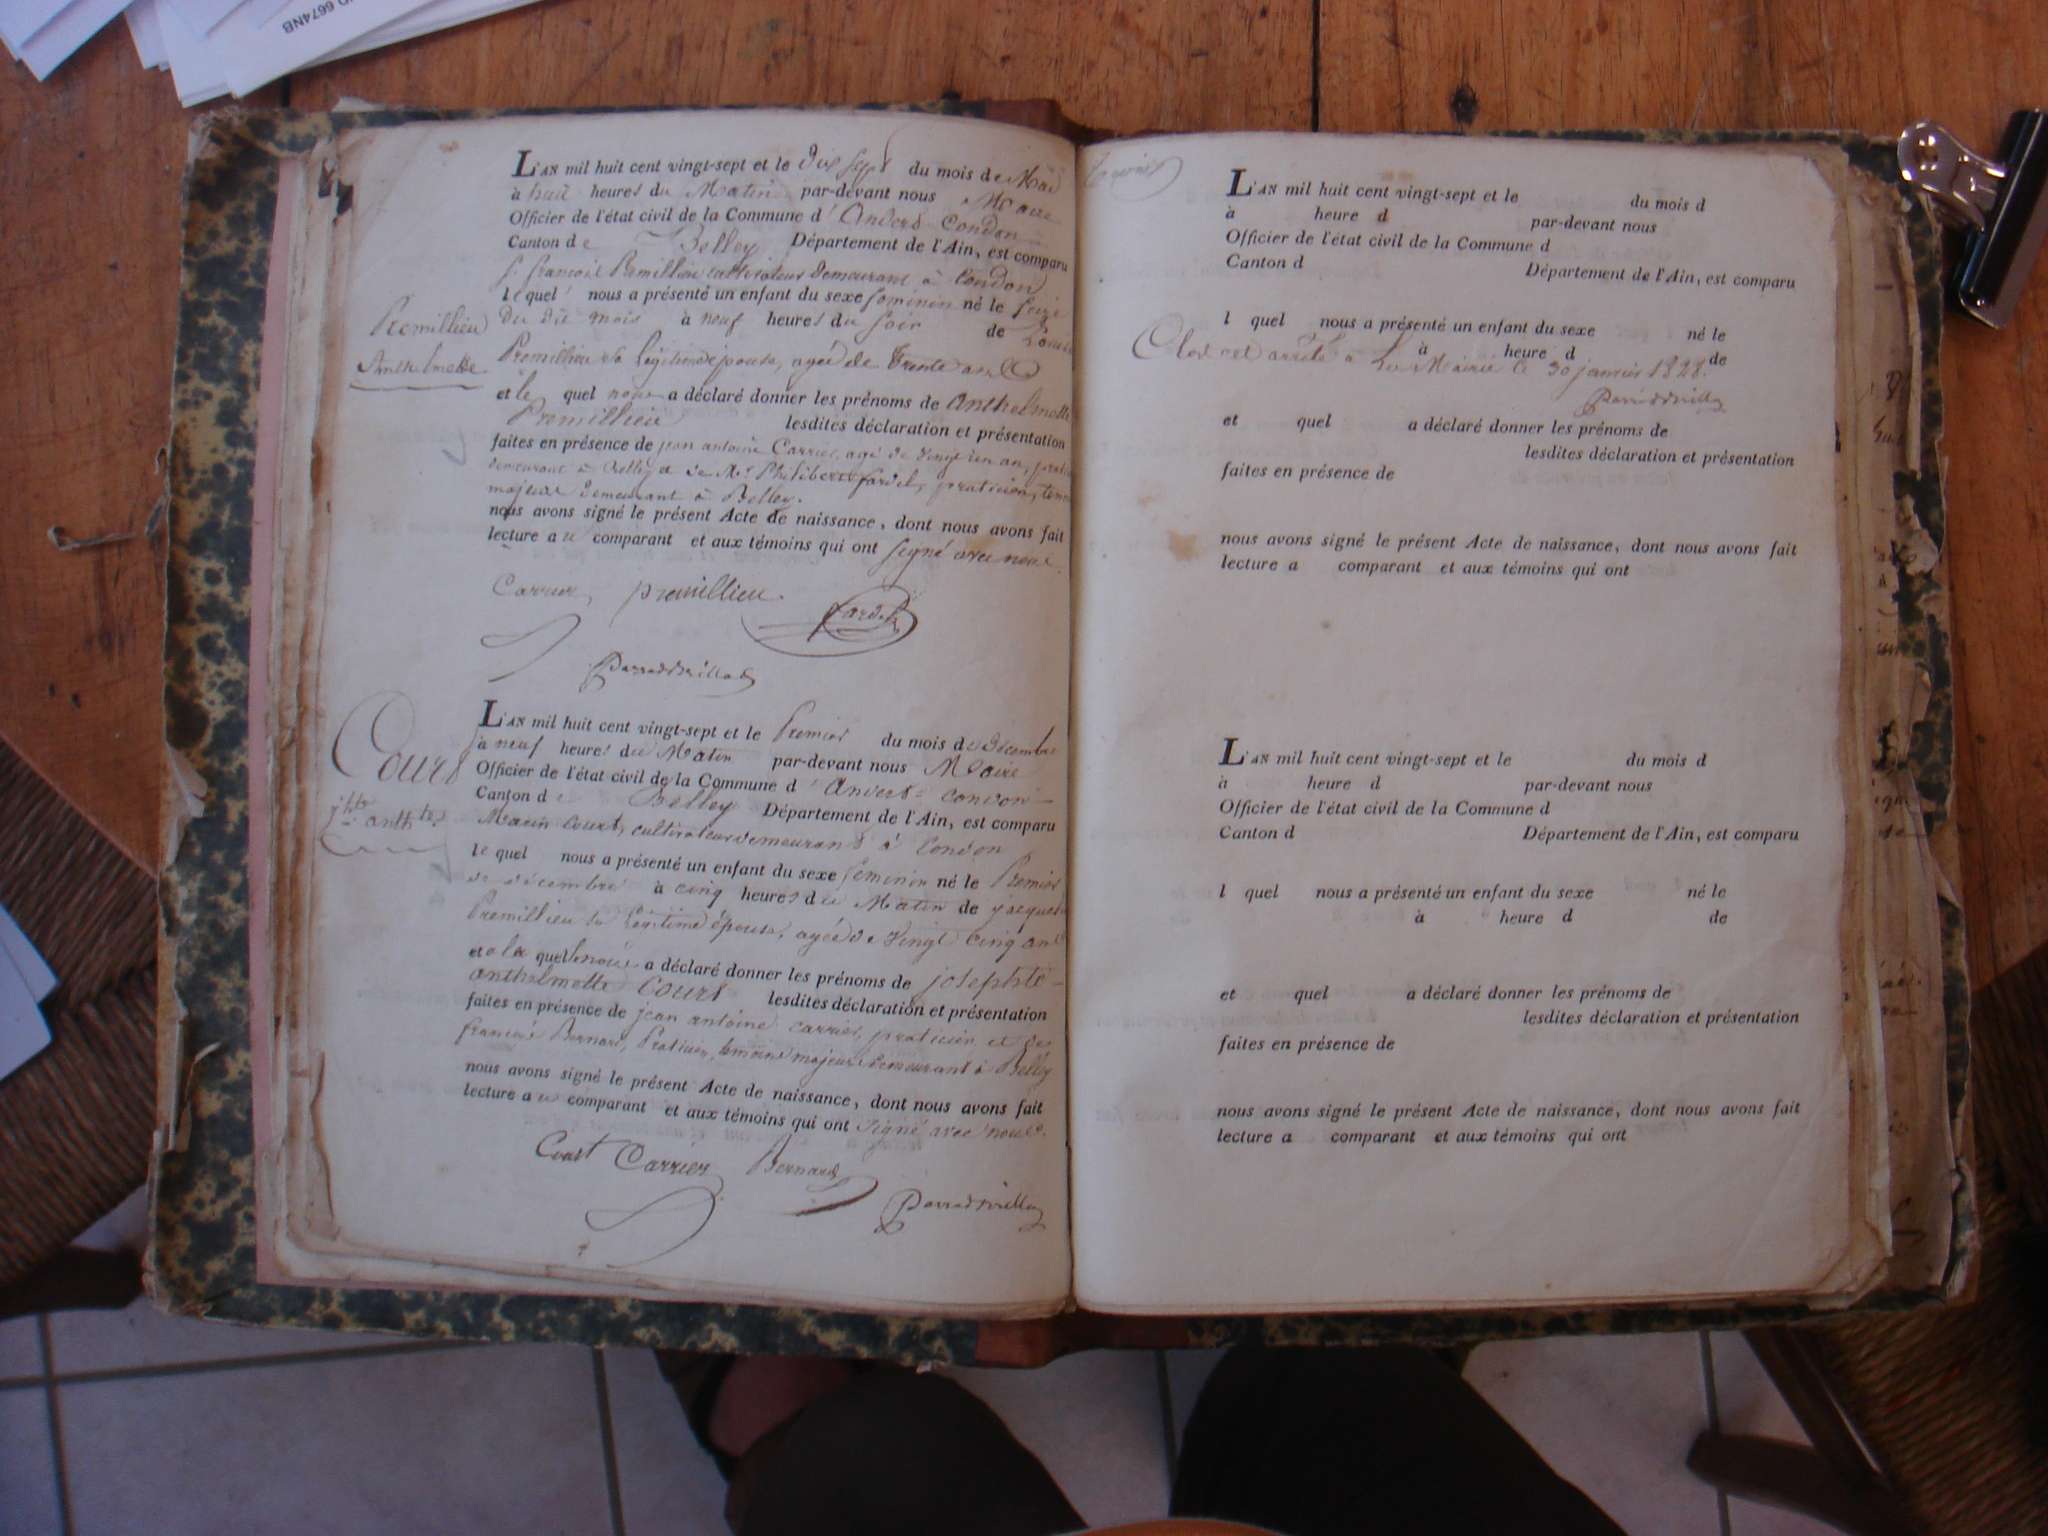 6674NB
L'AN mil huit cent vingt-sept et le dix sept du mois de Mai
à huit heures du Matin par-devant nous Maire
Officier de l'état civil de la Commune d'Anvers Condon
Canton de Belley Département de l'Ain, est comparu
s. françois Premillieu cultivateur demeurant à Condon
lequel nous a présenté un enfant du sexe feminin né le seize
du dit mois à neuf heures du soir de Louise
Premillieu
Anthelmette
Premillieu sa légitime épouse, agée de trente ans
et le quel nous a déclaré donner les prénoms de Anthelmette
Premillieu lesdites déclaration et présentation
faites en présence de jean antoine Carrier, agé de vingt un an,
demeurant à Belley et de Mr Philibert fardel, praticien,
majeur demeurant à Belley.
nous avons signé le présent Acte de naissance, dont nous avons fait
lecture au comparant et aux témoins qui ont signé avec nous.
Carrier premillieu.
fardel
L'AN mil huit cent vingt-sept et le Premier du mois de décembre
à neuf heures du Matin par-devant nous Maire
Officier de l'état civil de la Commune d'Anvers condon
Canton de Belley Département de l'Ain, est comparu
Court
jhte anthte
Marin Court, cultivateur demeurant à Condon
le quel nous a présenté un enfant du sexe feminin né le Premier
de décembre à cinq heures du Matin de jacqueline
Premillieu sa légitime épouse, agée de vingt cinq ans
et le quel nous a déclaré donner les prénoms de josephte
anthelmette Court lesdites déclaration et présentation
faites en présence de jean antoine carrier, praticien et de
françois Bernard, Praticien, témoins majeurs demeurant à Belley
nous avons signé le présent Acte de naissance, dont nous avons fait
lecture au comparant et aux témoins qui ont signé avec nous.
Court Carrier Bernard
L'AN mil huit cent vingt-sept et le du mois d
à heure d par-devant nous
Officier de l'état civil de la Commune d
Canton d Département de l'Ain, est comparu
l quel nous a présenté un enfant du sexe né le
à heure d de
Clos et arrêté à la Mairie le 30 janvier 1828.
et quel a déclaré donner les prénoms de
lesdites déclaration et présentation
faites en présence de
nous avons signé le présent Acte de naissance, dont nous avons fait
lecture a comparant et aux témoins qui ont
L'AN mil huit cent vingt-sept et le du mois d
à heure d par-devant nous
Officier de l'état civil de la Commune d
Canton d Département de l'Ain, est comparu
l quel nous a présenté un enfant du sexe né le
à heure d de
et quel a déclaré donner les prénoms de
lesdites déclaration et présentation
faites en présence de
nous avons signé le présent Acte de naissance, dont nous avons fait
lecture a comparant et aux témoins qui ont